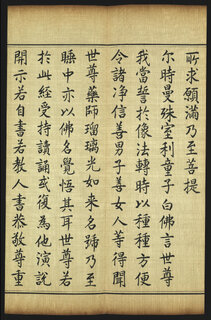 所求願滿乃至菩提
尔時曼殊室利童子白佛言世尊
我當誓於像法轉時以種種方便
令諸净信善男子善女人等得聞
世尊藥師瑠璃光如来名號乃至
睡中亦以佛名覺悟其耳世尊若
於此經受持讀誦或復為他演說
開示若自書若教人書恭敬尊重